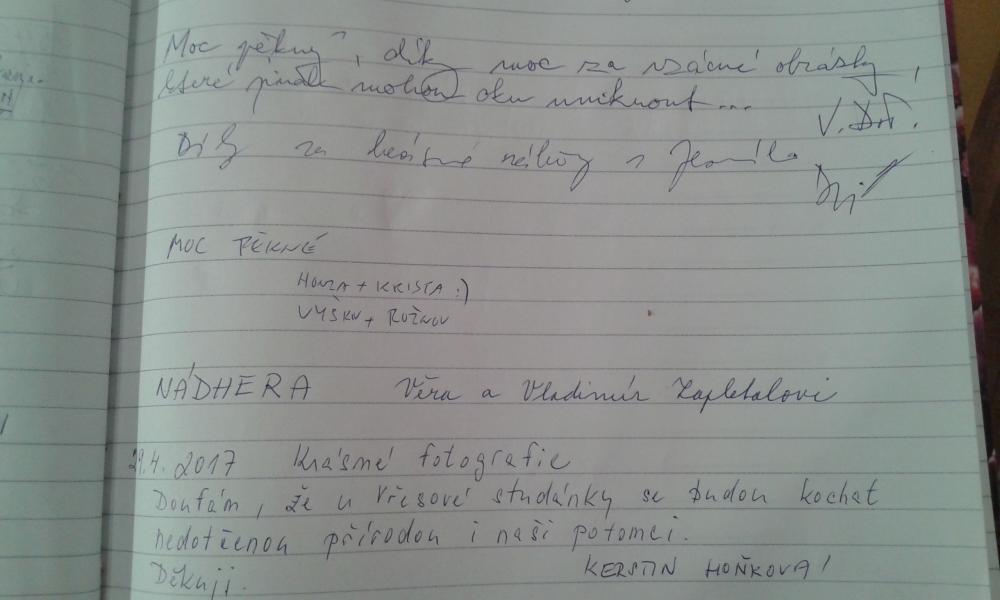 Moc pěkný, díky moc za vzácné obrázky,
které jinak mohou oku uniknout...
V.
Díky za krásné
MOC PĚKNÉ
HONZA + KRISTA :)
VYŠKOV + ROŽNOV
NÁDHERA Věra a Vladimír Zapletalovi
29.4.2017 Krásné fotografie
Doufám, že u Vřesové studánky se budou kochat
nedotčenou přírodou i naši potomci.
Děkuji.
KERSTIN HOŇKOVÁ